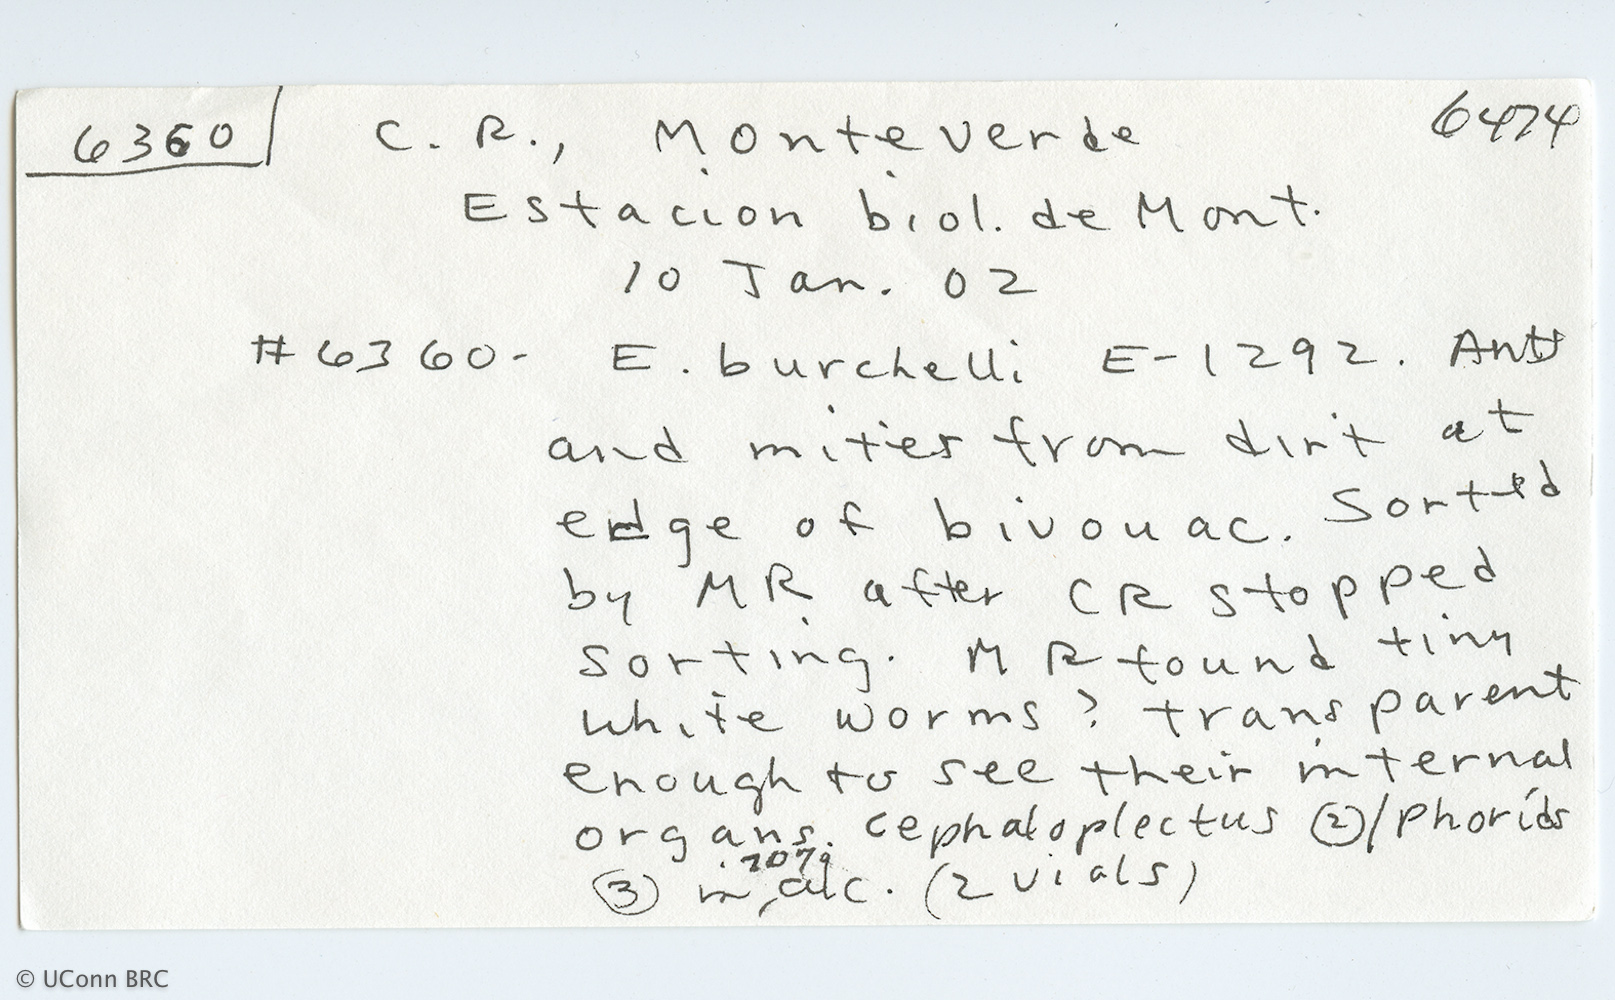 6360 C. R., Monteverde 6474
Estacion biol. de Mont.
10 Jan. 02
#6360- E. burchelli E-1292. Ants
and mites from dirt at
edge of bivouac. Sorted
by MR after CR stopped
sorting. MR found tiny
white worms? transparent
enough to see their internal
organs. Cephaloplectus ②/Phorids
③ in 70% alc. (2 vials)
© UConn BRC